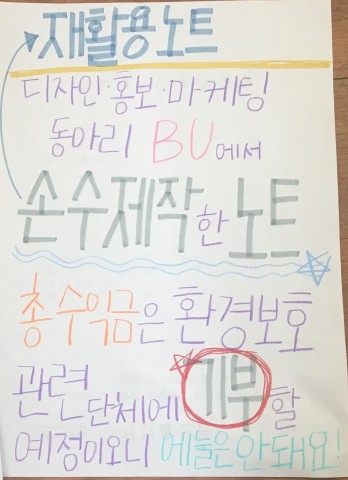 재활용노트
디자인·홍보·마케팅
동아리 BU에서
손수제작한 노트
총 수익금은 환경보호
관련단체에 기부할
예정이오니 에눌은 안돼요!